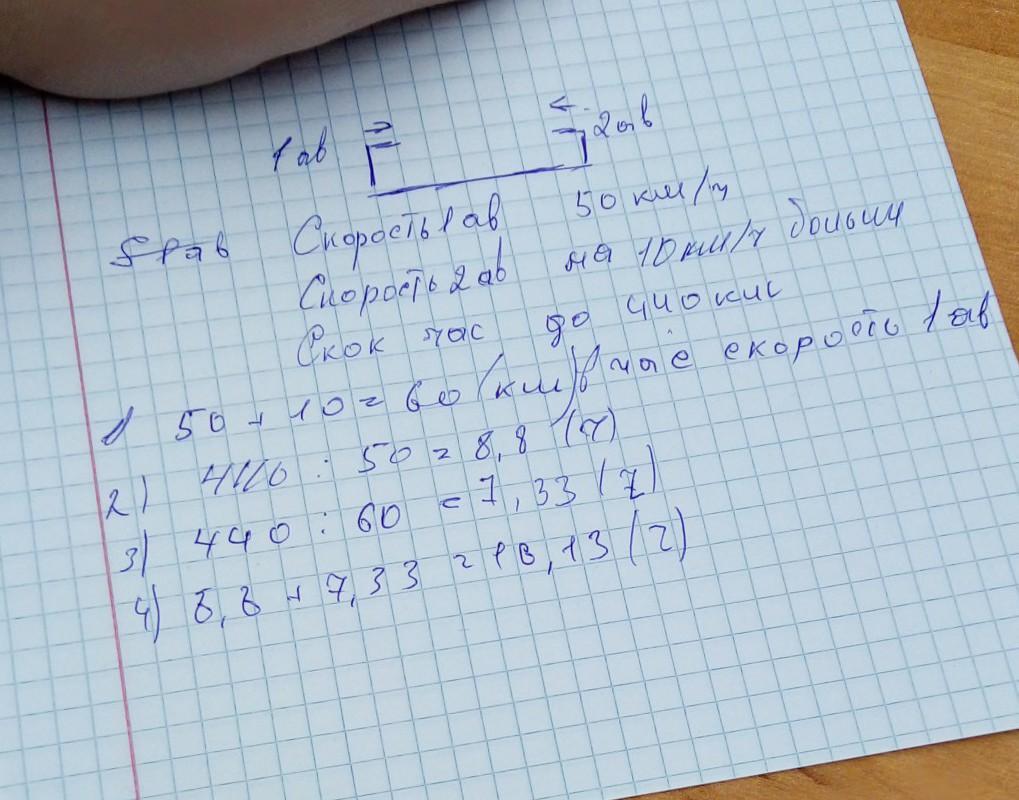 1 ав 2 ав
S 1 ав Скорость 1 ав 50 км/ч
Скорость 2 ав на 10 км/ч больш
Скок час до 440 км
1) 50 + 10 = 60 (км) в час скорость 1 ав
2) 440 : 50 = 8,8 (ч)
3) 440 : 60 = 7,33 (ч)
4) 8,8 + 7,33 = 16,13 (ч)